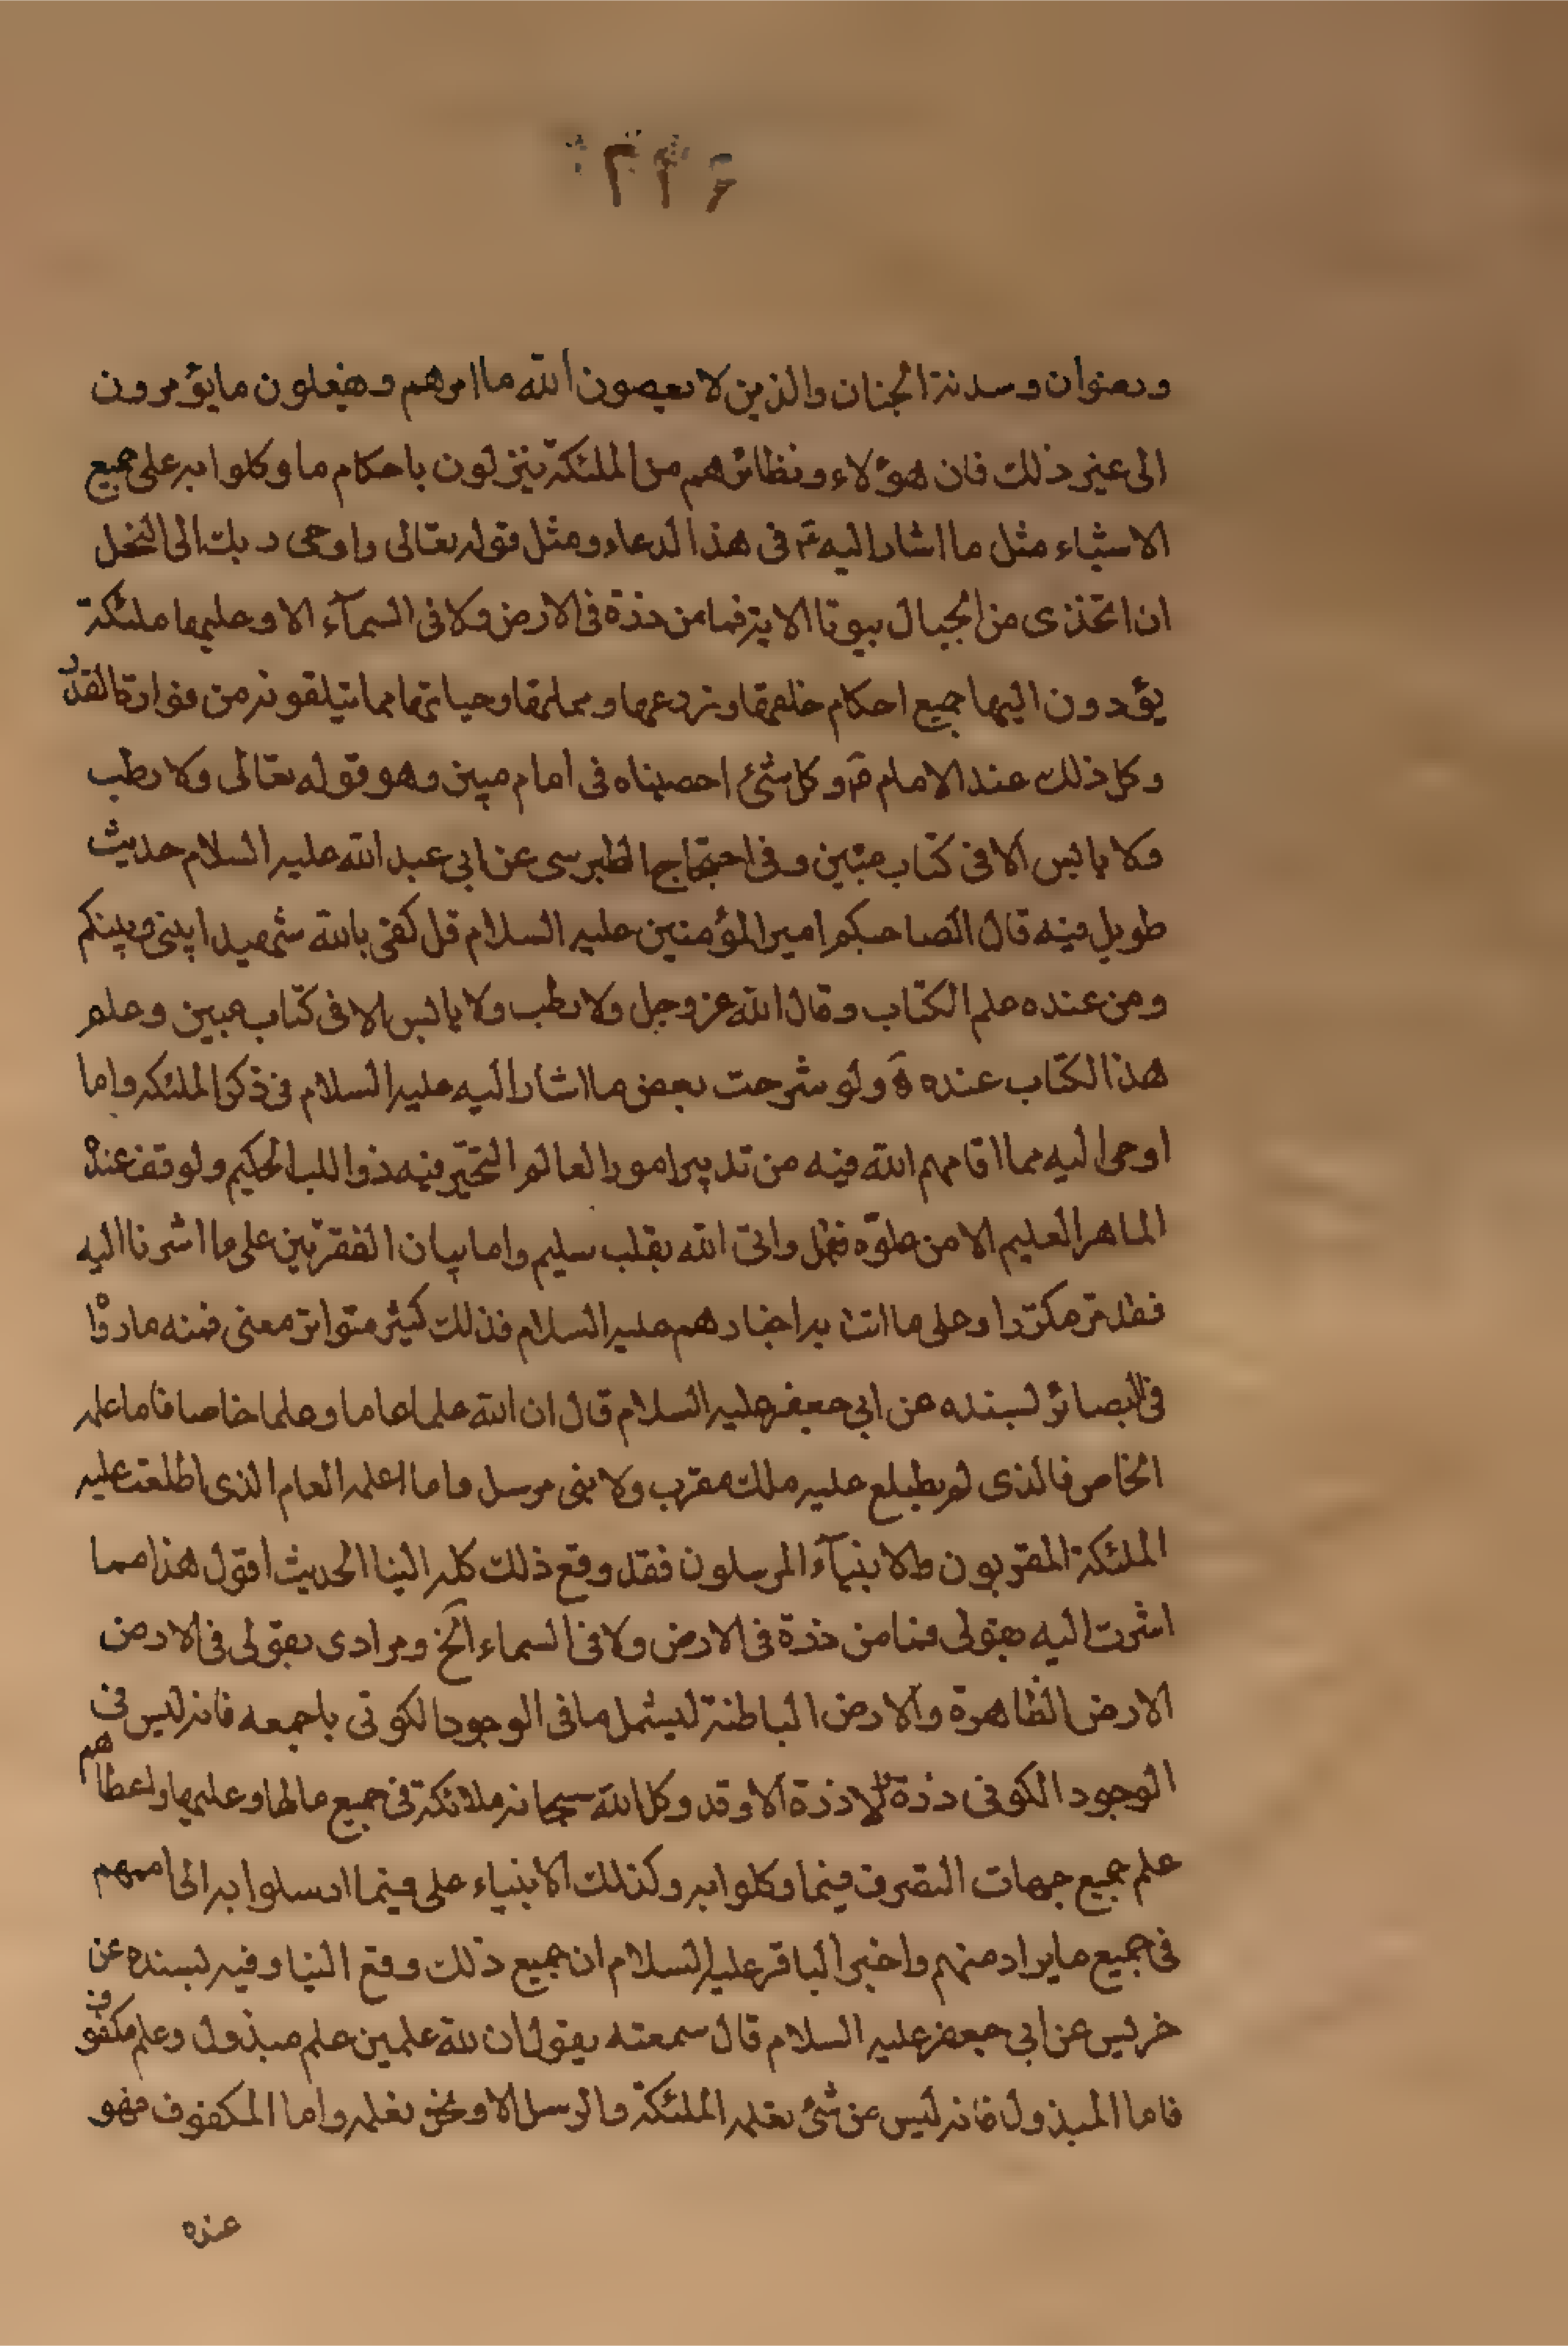 ٢١٦
ورضوان وسدنة الجنان والذين لا يعصون الله ما امرهم ويفعلون ما يؤمرون
الى غير ذلك فان هؤلاء ونظائرهم من الملئكة ينزلون باحكام ما وكلوا به على جميع
الاشياء مثل ما اشار اليه ع في هذا الدعاء ومثل قوله تعالى واوحى ربك الى النحل
ان اتخذى من الجبال بيوتا الاية فما من ذرة في الارض ولا في السمآء الا وعليها ملئكة
يؤدون اليها جميع احكام خلقها و ومماتها وحياتها مما يتلقونه من القدر
وكل ذلك عند الامام ع وكل شئ احصيناه في امام مبين وهو قوله تعالى ولا رطب
ولا يابس الا في كتاب مبين وفى احتجاج الطبرسى عن ابي عبد الله عليه السلام حديث
طويل فيه قال لصاحبكم امير المؤمنين عليه السلام قل كفى بالله شهيدا بينى وبينكم
ومن عنده علم الكتاب وقال الله عز وجل ولا رطب ولا يابس الا في كتاب مبين وعلم
هذا الكتاب عنده ولو شرحت بعض ما اشار اليه عليه السلام في ذكر الملئكة وما
اوحى اليه مما اقامهم الله فيه من تدبير امور العالم لتحير فيه ذو اللب الحكيم ولوقف عنده
الماهر العليم الا من علوه واتى الله بقلب سليم واما بيان الفقرتين على ما اشرنا اليه
فقد مر مكررا وعلى ما اتت به اخبارهم عليه السلام فذلك كثير متواتر معنى فمنه ما رواه
في البصائر بسنده عن ابى جعفر عليه السلام قال ان لله علما عاما وعلما خاصا فاما علمه
الخاص فالذى لم يطلع عليه ملك مقرب ولا نبى مرسل واما علمه العام الذى اطلعت عليه
الملئكة المقربون والانبيآء المرسلون فقد وقع ذلك كله الينا الحديث اقول هذا مما
اشرت اليه بقولى فما من ذرة في الارض ولا في السماء الخ ومرادى بقولى في الارض
الارض الظاهرة والارض الباطنة ليشمل ما في الوجود الكونى باجمعه فانه ليس في
الوجود الكونى ذرة ولا ذرة الا وقد وكل الله سبحانه ملائكة في جميع مالها وعليها واعطاهم
علم جميع جهات التصرف فيما وكلوا به وكذلك الانبياء على فيما ارسلوا به الى اممهم
في جميع ما يراد منهم واخبر الباقر عليه السلام ان جميع ذلك وقع الينا وفيه بسنده عن
ضريس عن ابى جعفر عليه السلام قال سمعته يقول ان لله علمين علم مبذول وعلم مكفوف
فاما المبذول فانه ليس من شئ يعلمه الملئكة والرسل الا ونحن نعلمه واما المكفوف فهو
عنده